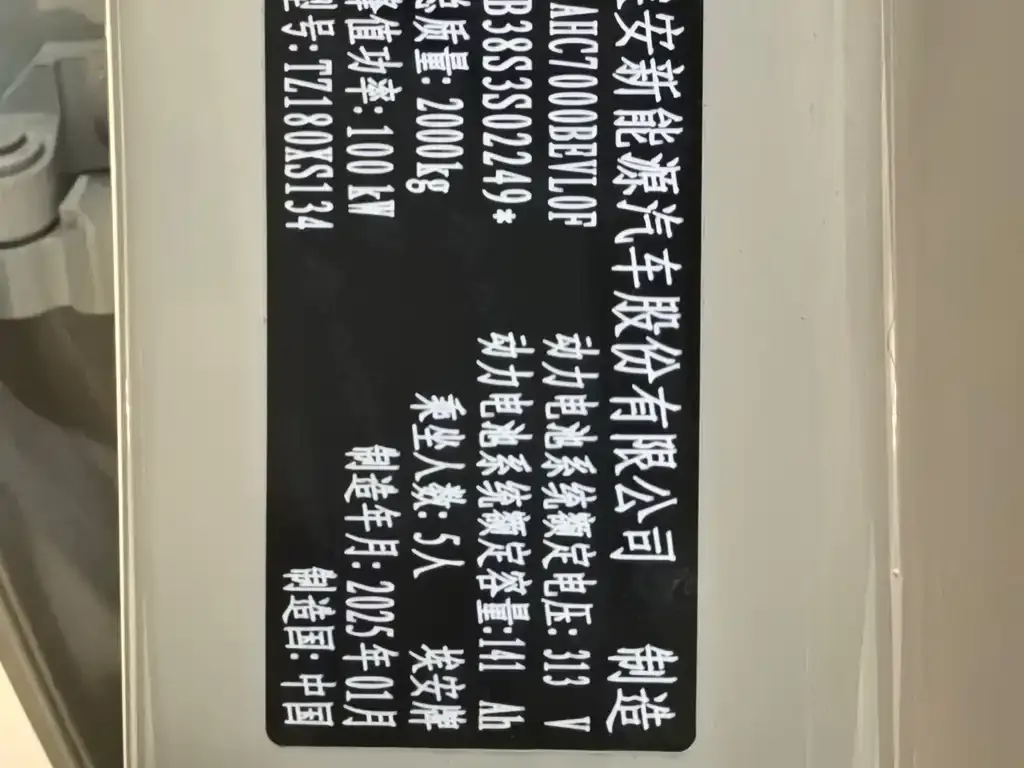 安新能源汽车股份有限公司 制造
AHC7000BEVL0F 动力电池系统额定电压: 313 V
B38S3S02249* 动力电池系统额定容量:141 Ah
质量: 2000kg 乘坐人数: 5人 埃安牌
峰值功率: 100 kW 制造年月: 2025年01月
型号: TZ180XS134 制造国: 中国